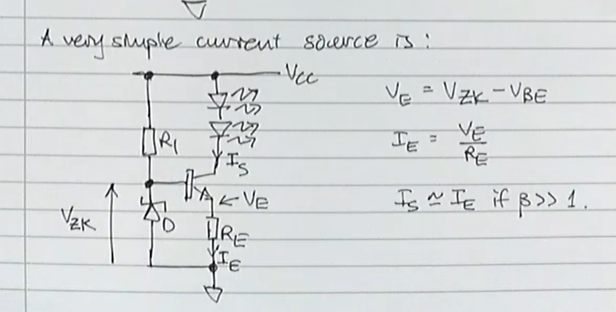 A very simple current source is:
VCC
R1
IS
VZK
D
VE
RE
IE
VE = VZK - VBE
IE = VE/RE
IS ≃ IE if β >> 1.